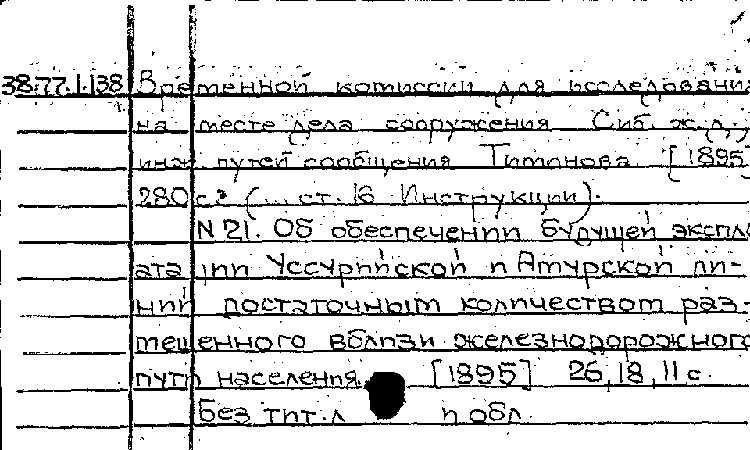 38.77.1.138 Временной комиссии для исследования
на месте дела сооружения Сиб. ж.д.,
инж. путей сообщения Тимонова. [1895]
280 с. (... ст. 16 Инструкции).
N 21. Об обеспечении будущей экспло
атации Уссурийской и Амурской ли-
ний достаточным количеством раз-
мещенного вблизи железнодорожного
пути населения [1895] 26,18,11 с.
без тит. л и обл.